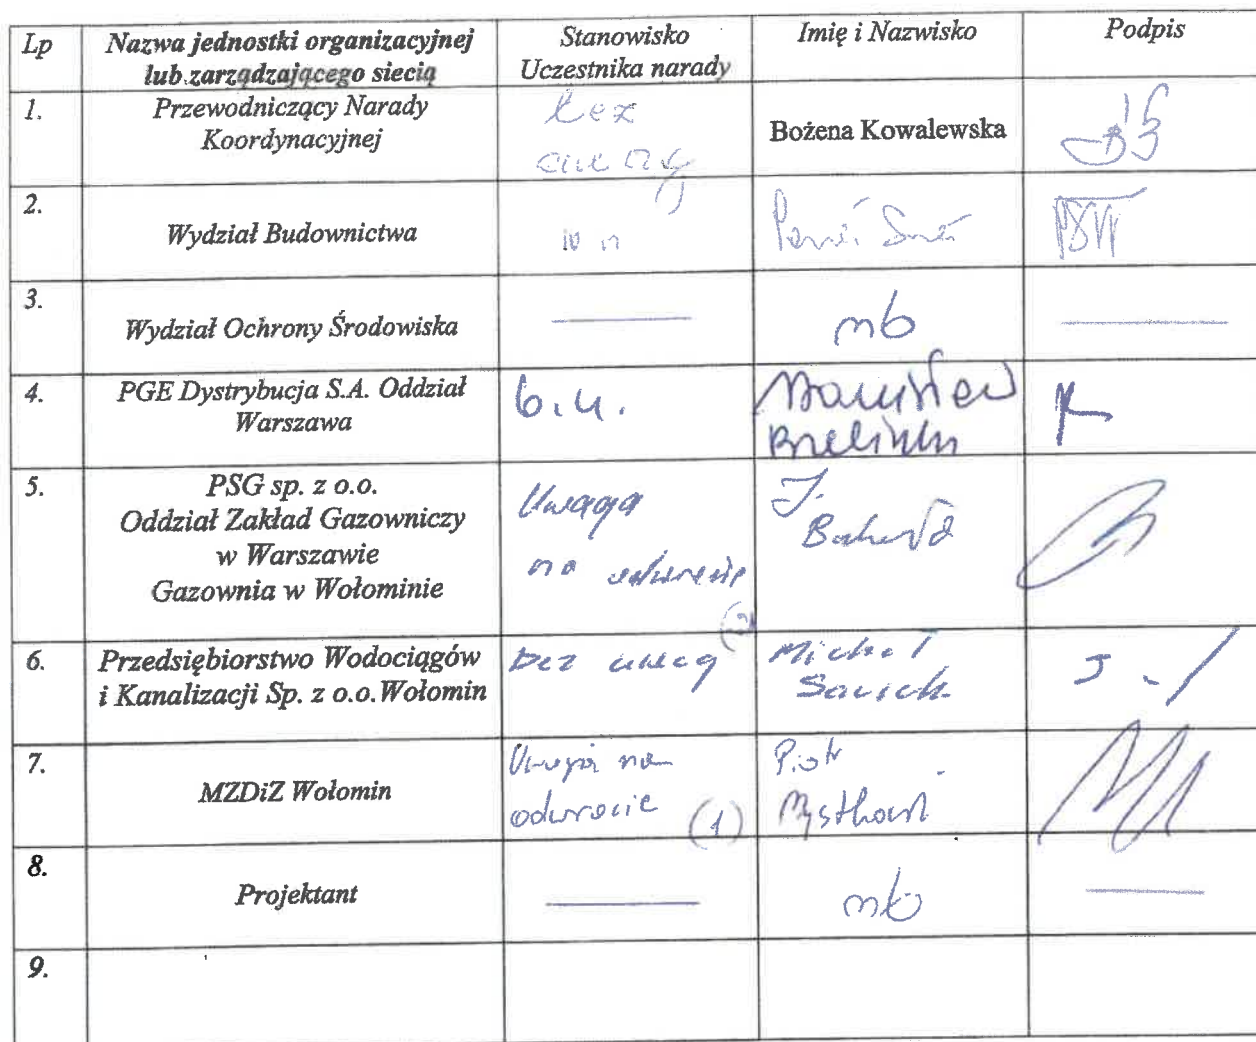 Lp
Nazwa jednostki organizacyjnej
lub zarządzającego siecią
Stanowisko
Uczestnika narady
Imię i Nazwisko
Podpis
1.
Przewodniczący Narady
Koordynacyjnej
bez
uwag
Bożena Kowalewska
2.
Wydział Budownictwa
3.
Wydział Ochrony Środowiska
nb
4.
PGE Dystrybucja S.A. Oddział
Warszawa
b.u.
Stanisław
5.
PSG sp. z o.o.
Oddział Zakład Gazowniczy
w Warszawie
Gazownia w Wołominie
Uwaga
na odwrocie
(2)
J.
6.
Przedsiębiorstwo Wodociągów
i Kanalizacji Sp. z o.o. Wołomin
bez uwag
Michał
7.
MZDiZ Wołomin
Uwaga na
odwrocie (1)
Piotr
8.
Projektant
nb
9.